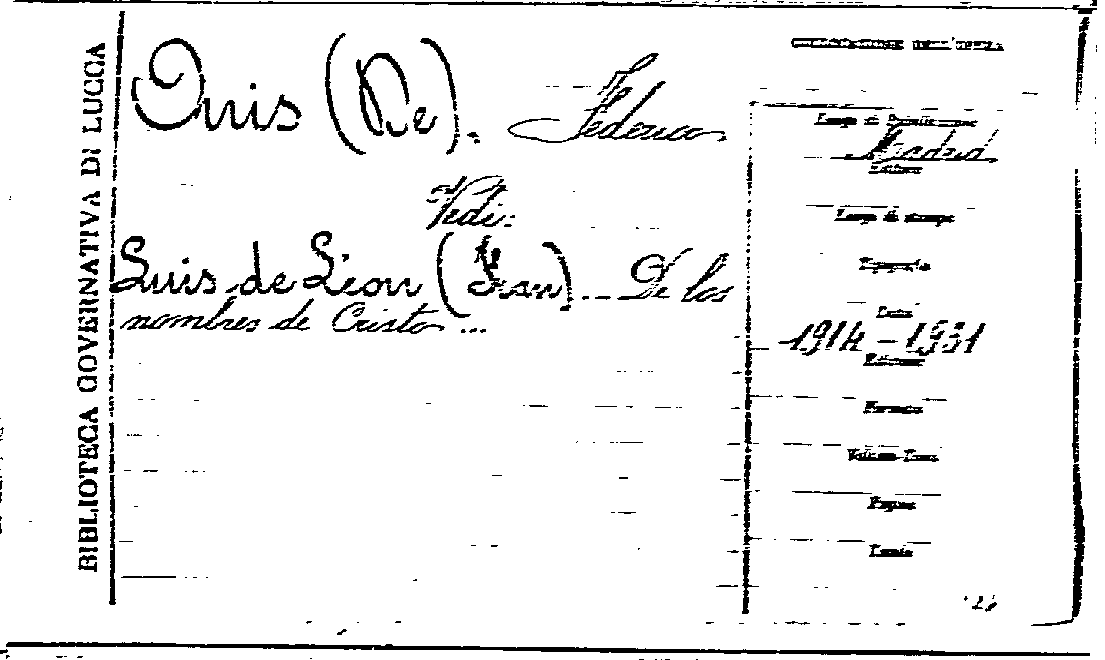 BIBLIOTECA GOVERNATIVA DI LUCCA
Onis (De). Federico
Vedi:
Luis de Léon (Fran) ... De los
nombres de Cristo ...
Luogo di Pubblicazione
Madrid
Editore
Luogo di stampa
Tipografia
Data
1914-1931
Edizione
Formato
Volume-Tomo
Pagine